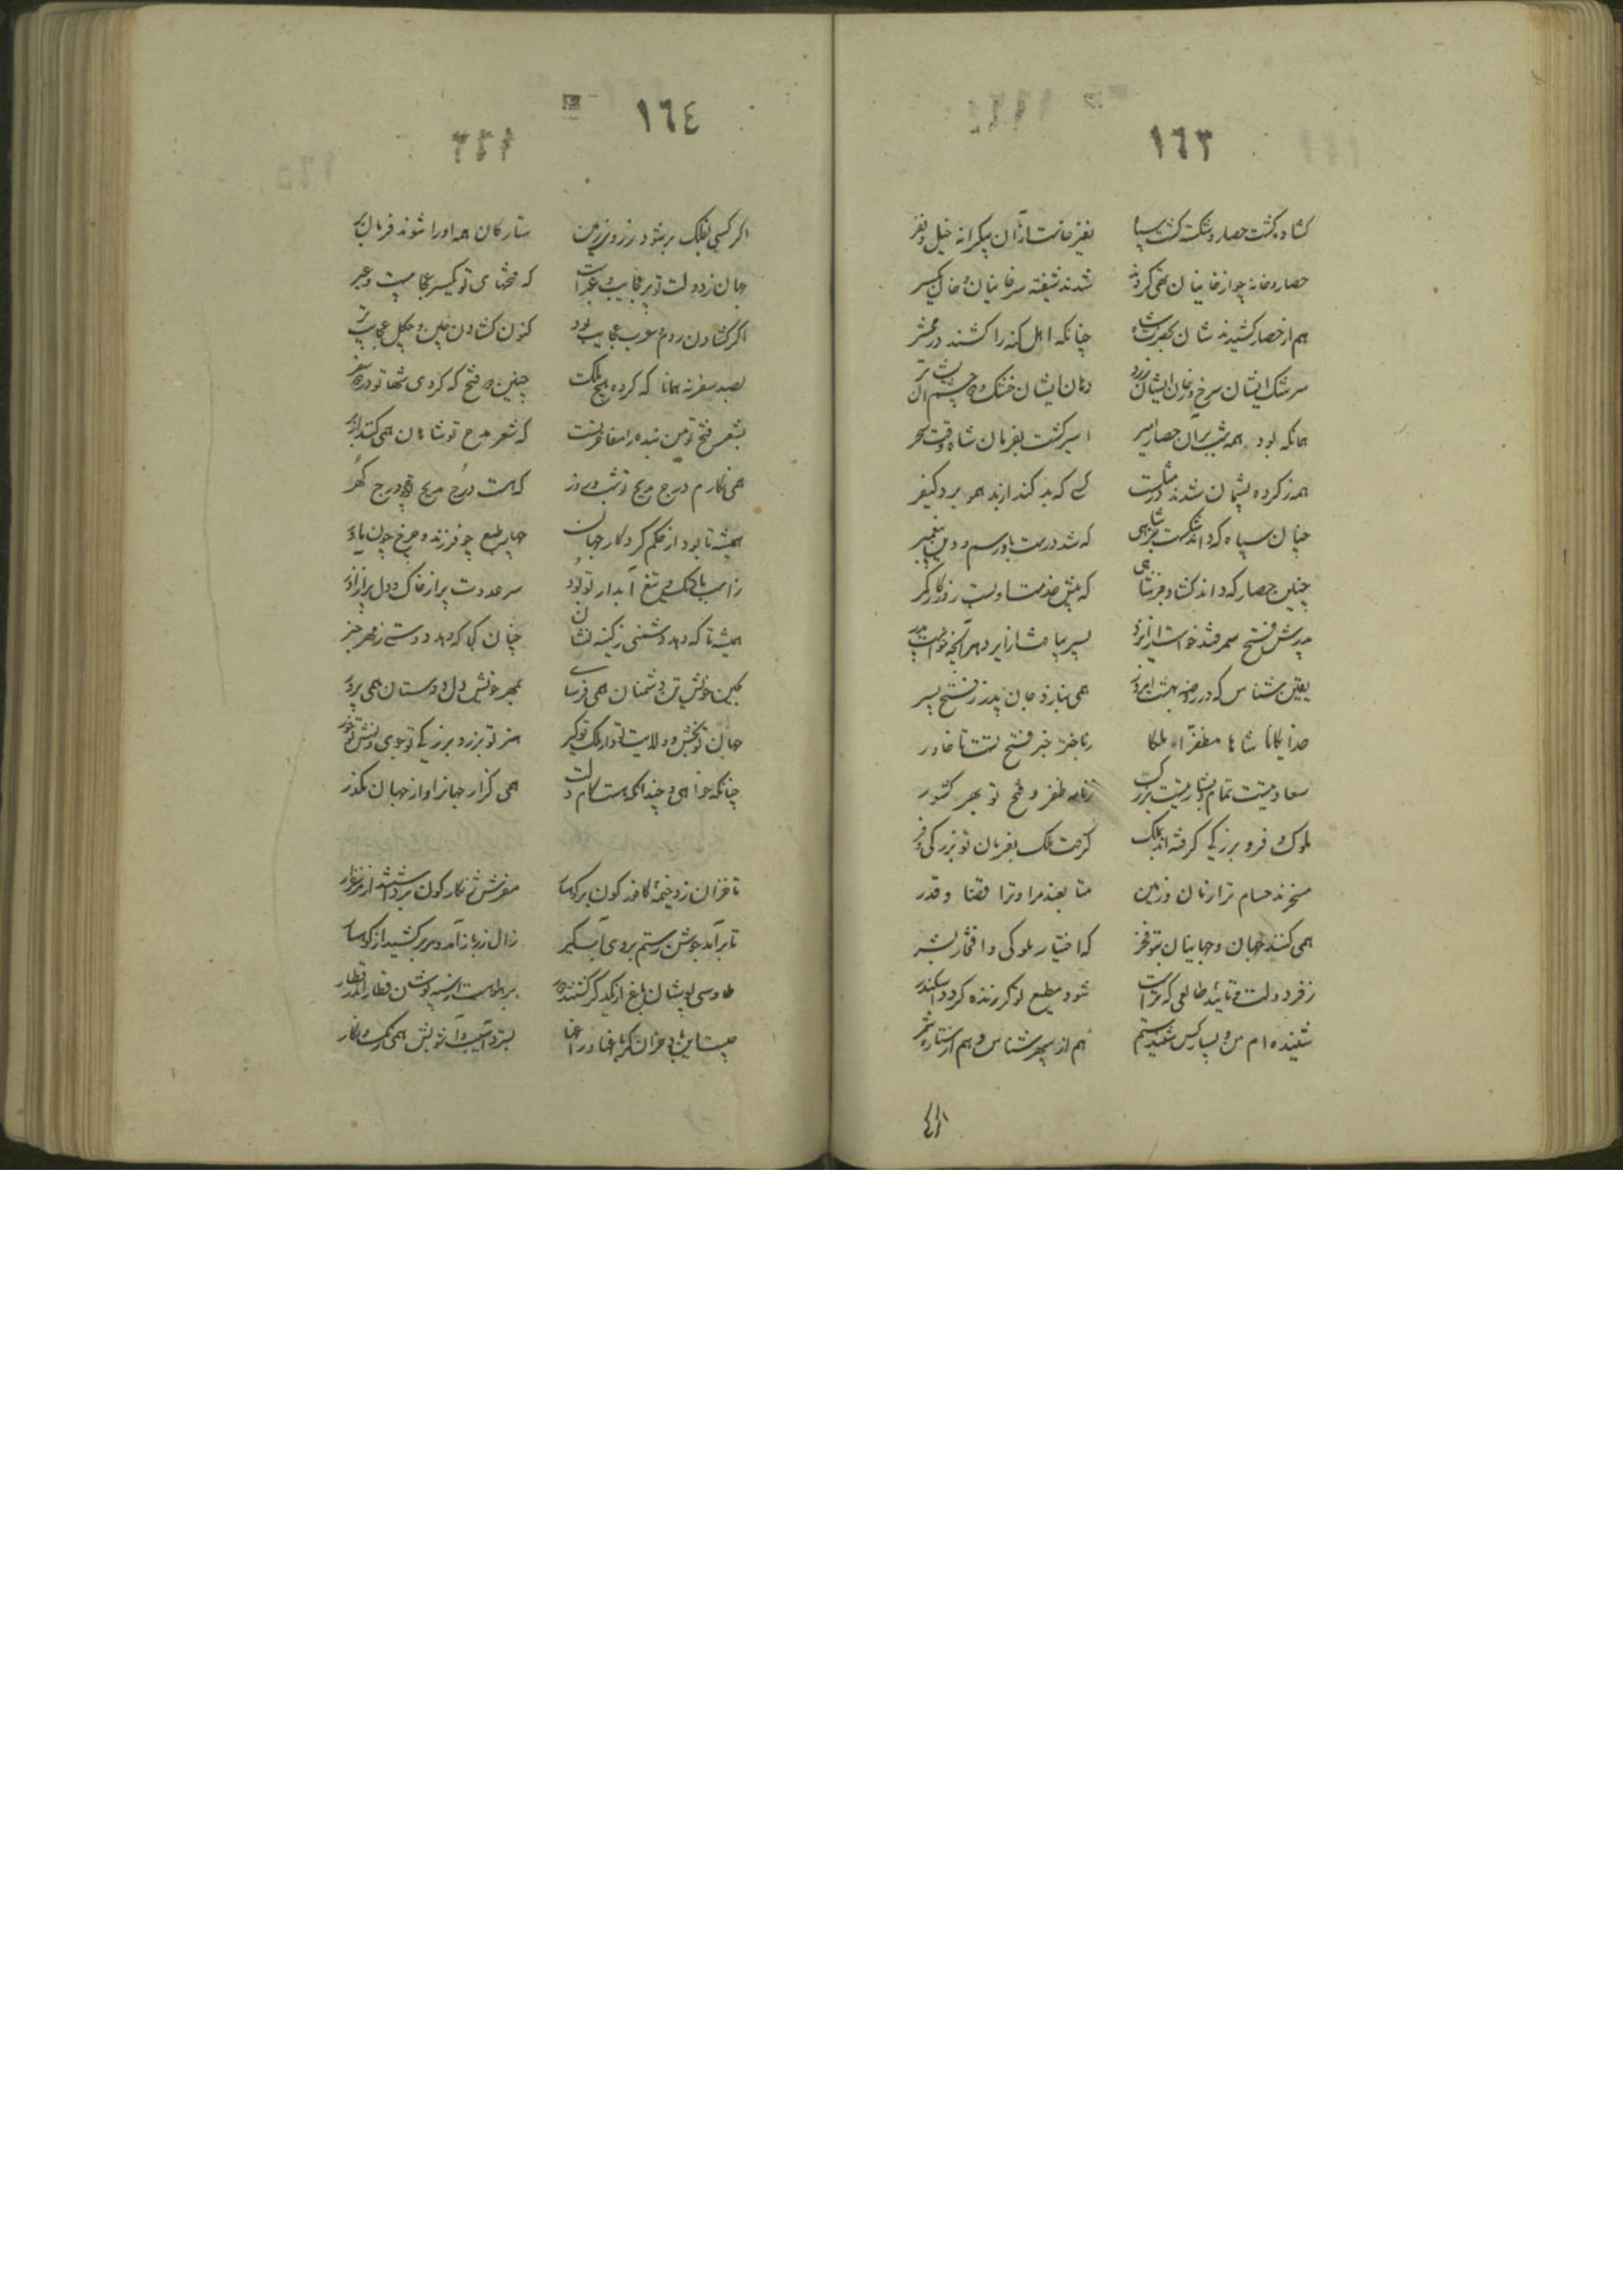 ١٦٣
گشاده گشت حصار و شکسته گشت سپاه
نفیر خاست از آن بیکرانه خیل و نفر
حصار و خانه چو از خانیان تهی کردند
شدند شیفته سر خانیان و خان یکسر
هم از حصار کشیدندشان بحضرت شاه
چنانکه اهل گنه را کشند در محشر
سرشک ایشان سرخ و رخان ایشان زرد
دهان ایشان خشک و دو چشم ایشان تر
همانکه بود همه شب بر آن حصار امیر
اسیر گشت بفرمان شاه وقت سحر
همه ز کرده پشیمان شدند و در مثلست
کسی که بد کند از بد همو برد کیفر
چنان سپاه که داند شکست جز شاهی
که شد درست باو رسم و دین پیغمبر
چنین حصار که داند گشاد جز شاهی
که پیش خدمت او بست روزگار کمر
پدرش فتح سمرقند خواست از ایزد
پسر بیافت ز ایزد هر آنچه خواست پدر
یقین شناس که در روضه بهشت امروز
همی بنازد جان پدر ز فتح پسر
خدایگانا شاها مظفرا ملکا
رباخبز خبر فتح تست تا خاور
سعادتیست تمام و بشارتیست بزرگ
ز نامه ظفر و فتح تو بهر کشور
ملوک فر و بزرگی گرفته‌اند بملک
گرفت ملک بفرمان تو بزرگی و فر
مسخرند حسام ترا زمان و زمین
متابعند مراد ترا قضا و قدر
همی کنند جهان و جهانیان بتو فخر
که اختیار ملوکی و افتخار بشر
ز فر دولت و تأیید طالعی که تراست
شود مطیع تو گر زنده گردد اسکندر
شنیده‌ام من و بسیار کس شنیدستم
هم از سپهرشناس و هم از ستاره شمر
١٦٤
اگر کسی بفلک بر شود ز روی زمین
ستارگان همه او را شوند فرمان بر
جهان ز دولت تو پر عجایب و عبر است
که فتحهای تو یکسر عجایبست و عبر
اگر گشادن روم و عرب عجایب بود
کنون گشادن چین و چگل عجایب تر
بصد سفر نه همانا که کرده هیچ ملک
چنین دو فتح که کردی شها تو در دو سفر
بشعر فتح تو من بنده را مفاخرتست
که شعر مدح تو شاهان همی کنند از بر
همی نگارم درج مدیح تو شب و روز
که هست درج مدیح تو درج گهر
همیشه تا بود از حکم کردگار جهان
چهار طبع چو فرزند و چرخ چون مادر
همیشه تا که دهد دشمنی ز کینه نشان
چنان کجا که دهد دوستی ز مهر خبر
بکین خویش تن دشمنان همی فرسای
بمهر خویش دل دوستان همی پرور
جهان تو بخش و ولایت تو دار و ملک تو گیر
هنر تو برز و بزرگی تو جوی و دانش تو خور
چنانکه خواهی و چندانکه هست کام دلت
همی گذار جهان را و از جهان مگذر
تا خزان زد خیمه کافورگون بر کوهسار
مفرش زنگارگون برداشتند از مرغزار
تا برآمد جوشن رستم بروی آبگیر
زال زر باز آمد و سر بر کشید از کوهسار
طاوسی پوشان باغ از یکدگر گشتند